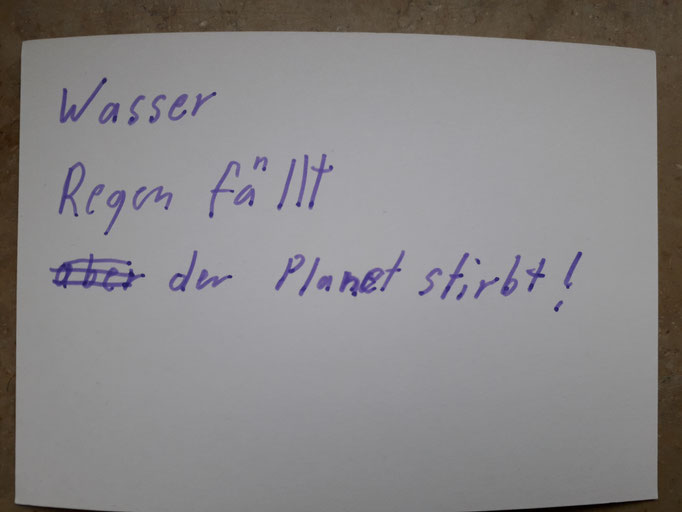 Wasser
Regen fällt
aber der Planet stirbt!